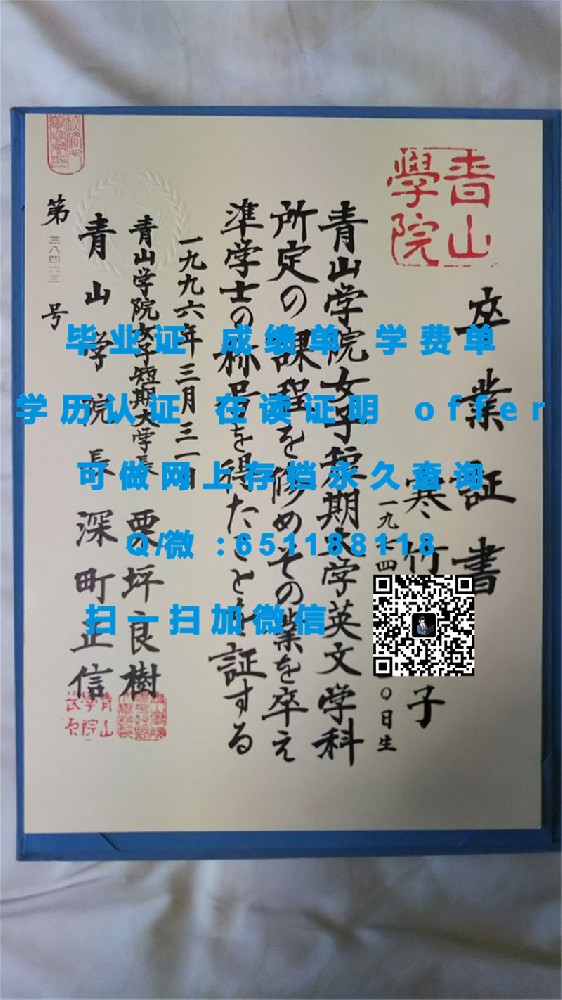 青山學院
卒業証書
寒竹
子
〇日生
青山学院女子短期大学英文学科
所定の課程を修めその業を卒え
準学士の称号を得たことを証する
一九九六年三月三一日
青山学院女子短期大学長 栗坪良樹
青山学院長 深町正信
第 号
毕业证 成绩单 学费单
学历认证 在读证明 offer
可做网上存档永久查询
Q/微:651188118
扫一扫加微信